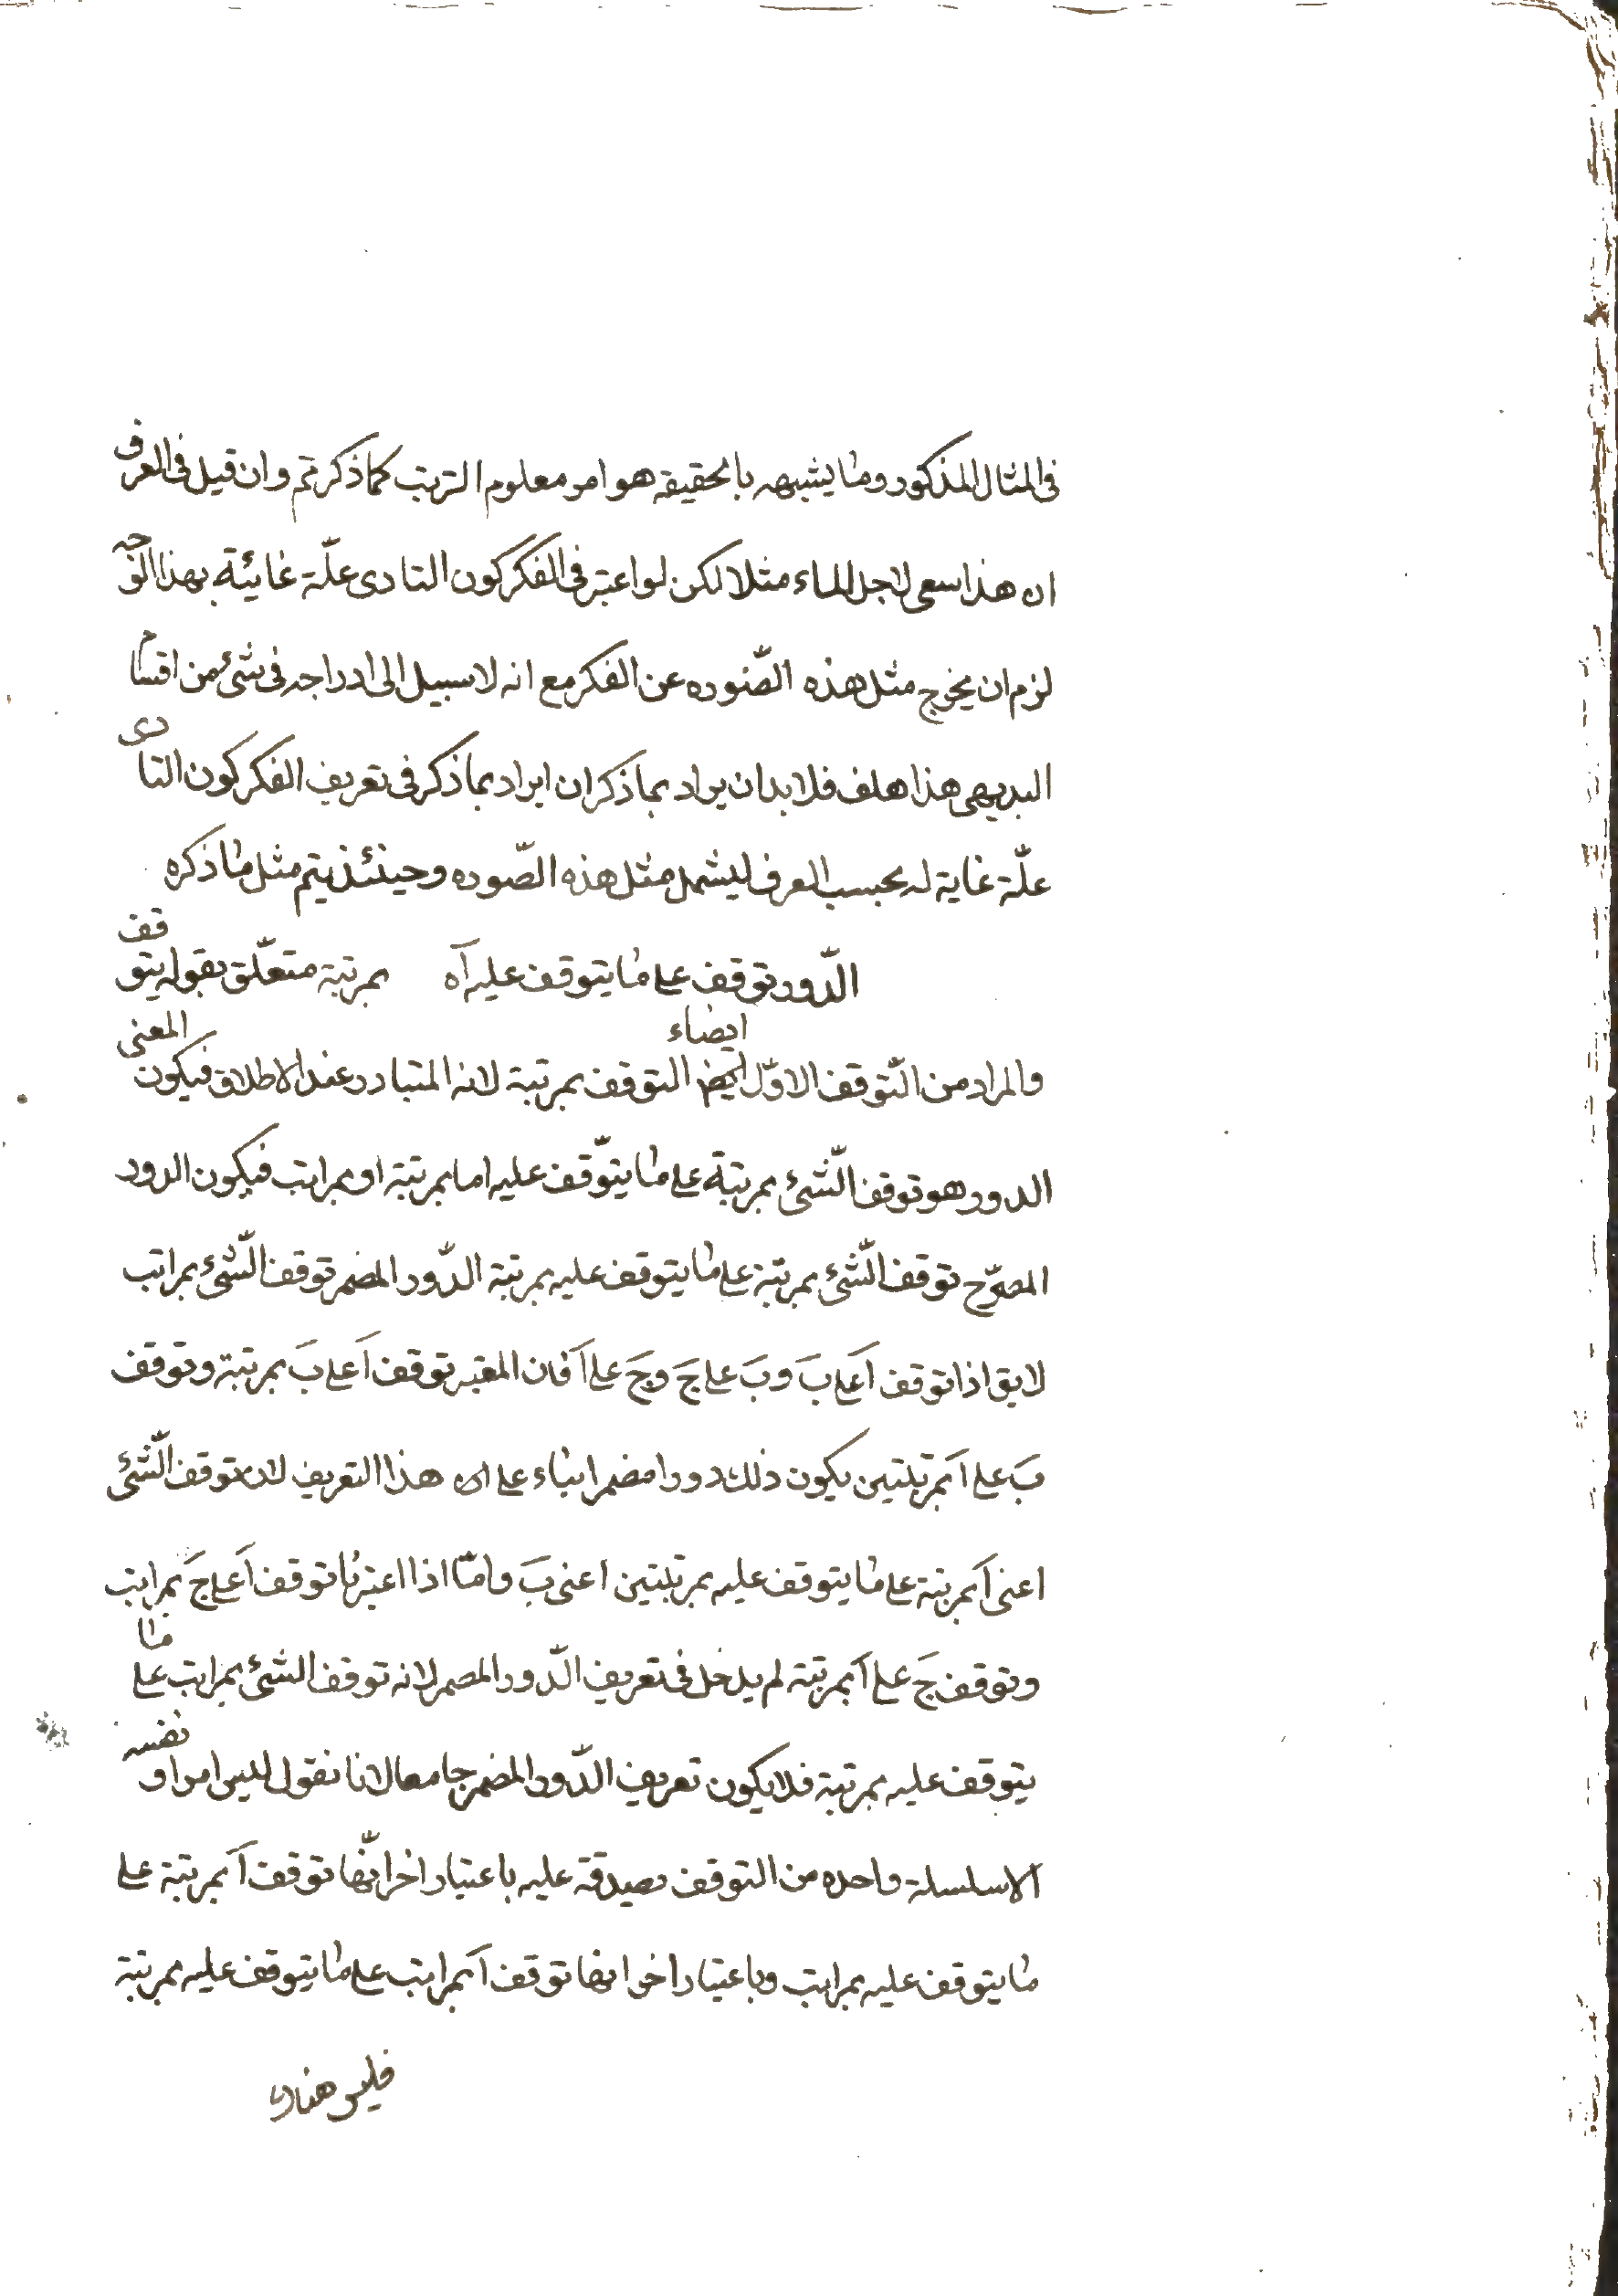 فى المثال المذكور وما يشبهه بالحقيقة هو امر معلوم الترتب كما ذكرتم وان قيل فى العرف
ان هذا سعى لاجل الماء مثلا لكن لو اعتبر فى الفكر كون التادى علّة غائيّة بهذا الوجه
لزم ان يخرج مثل هذه الصّوره عن الفكر مع انه لا سبيل الى ادراجه فى شئ من اقسام
البديهى هذا هلف فلا بد ان يراد بما ذكر ان ايراد بما ذكر فى تعريف الفكر كون التادى
علّة غاية له بحسب العرف ليشمل مثل هذه الصّوره وحينئذ يتم مثل ما ذكره
الدّور توقف على ما يتوقف عليه آه بمرتبة متعلّق بقوله يتوقف
والمراد من التّوقف الاوّل ايضاء التوقف بمرتبة لانه المتبادر عند الاطلاق فيكون المعنى
الدور هو توقف الشّئ بمرتبة على ما يتوّقف عليه اما بمرتبة او بمراتب فيكون الدور
المصرّح توقف الشّئ بمرتبة على ما يتوقف عليه بمرتبة الدّور المضمر توقف الشّئ بمراتب
لايق اذا توقف آ على بَ وبَ على جَ وجَ على آ فان المعتبر توقف آ على بَ بمرتبة وتوقف
بَ على آ بمرتبتين يكون ذلك دورا مضمرا بناء على هذا التعريف لانه توقف الشّئ
اعنى آ بمرتبة على ما يتوقف عليه بمرتبتين اعنى بَ وامّا اذا اعتبرنا توقف آ على جَ بمراتب
وتوقف جَ على آ بمرتبة لم يدخل فى تعريف الدّور المصمر لانه توقف الشئ بمراتب على ما
يتوقف عليه بمرتبة فلا يكون تعريف الدّور المضمر جامعا لانا نقول ليس امرا و نفسه
الا سلسلة واحده من التوقف يصدقة عليه باعتبار اخر انّها توقف آ بمرتبة على
ما يتوقف عليه بمراتب وباعتبار اخر انها توقف آ بمراتب على ما يتوقف عليه بمرتبة
فليس هناك